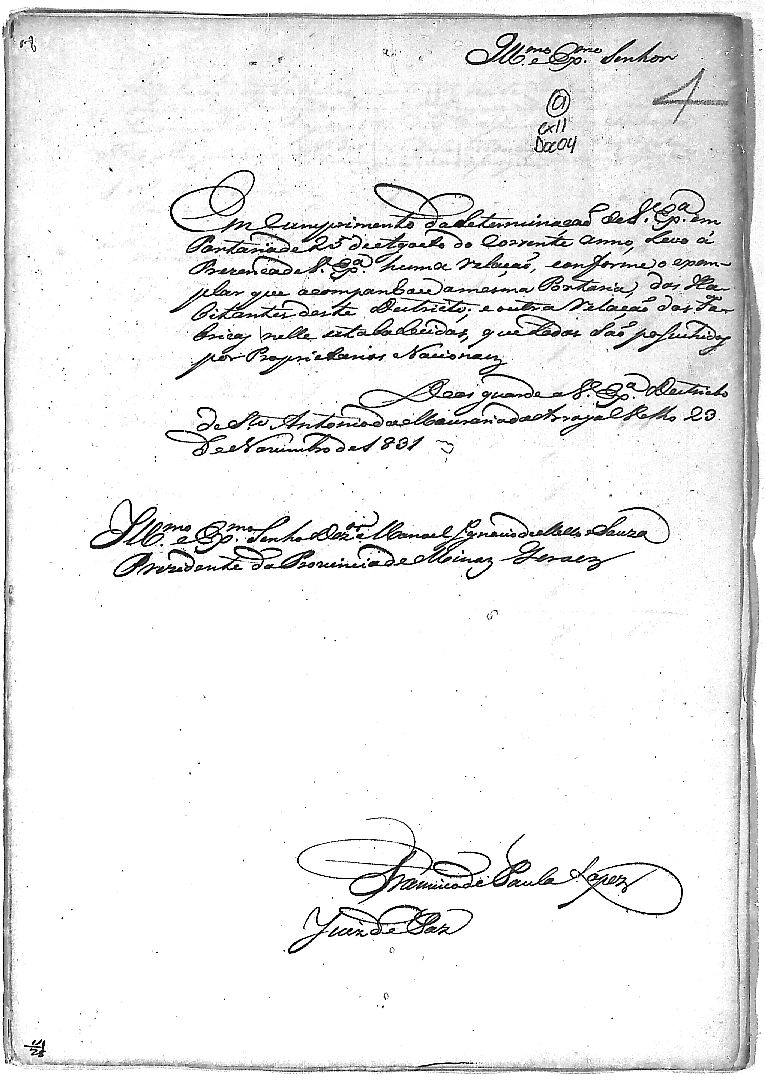 Ill.mo e Ex.mo Senhor
4
01
cx11
Doc04
Em Cumprimento da determinaçaõ de V. Ex.a em
Portaria de 25 de Agosto do Corrente anno, Levo á
Prezença de V. Ex.a huma relaçaõ, conforme o exem-
plar que acompanhou a mesma Portaria, dos Ha-
bitantes deste Destricto, e outra relaçaõ das Fa-
bricas nelle estabalecidas, que todas saõ possuhidas
por Proprietarios Nacionaez
Deos guarde a V. Ex.a Destricto
de Sto Antonio da Arrojal Velho 23
de Novembro de 1831
Ill.mo e Ex.mo Senhor Dez.or Manoel Ignacio de Mello e Souza
Prezidente da Provincia de Minaz Geraez
Francisco de Paula Lopez
Juiz de Paz